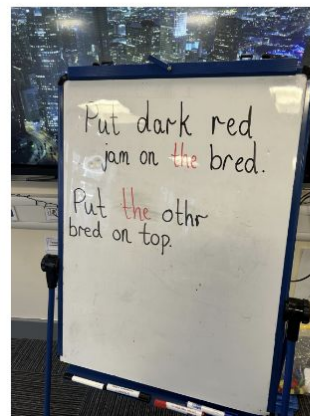 Put dark red
jam on the bred.
Put the othr
bred on top.